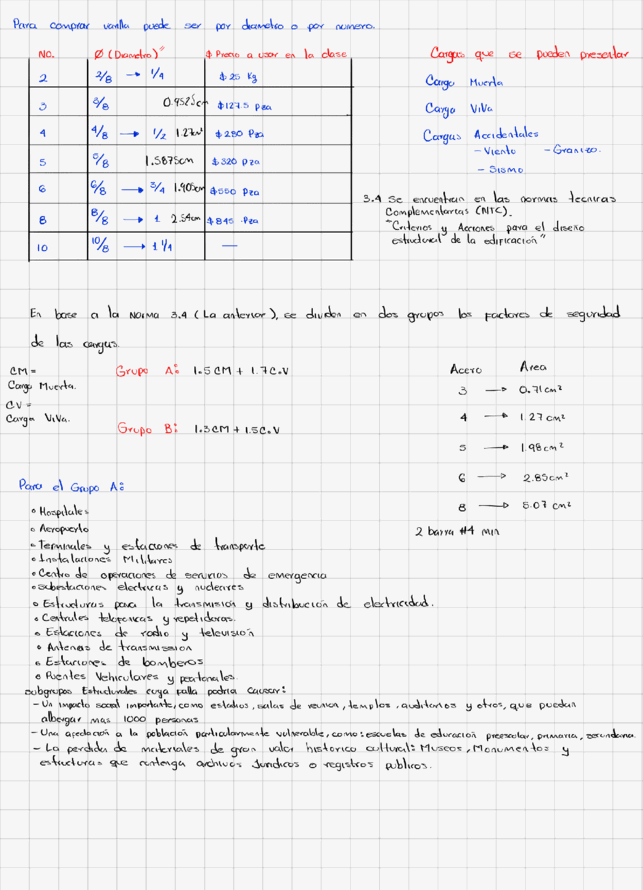 Para comprar varilla puede ser por diametro o por numero.
No. Ø (Diametro)" $ Precio a usar en la clase
2 2/8 → 1/4 $25 Kg
3 3/8 0.9525cm $127.5 Pza
4 4/8 → 1/2 1.27cm² $230 Pza
5 5/8 1.5875cm $320 pza
6 6/8 → 3/4 1.905cm $550 Pza
8 8/8 → 1 2.54cm $845 Pza
10 10/8 → 1 1/4 —
Cargas que se pueden presentar
Carga Muerta
Carga ViVa
Cargas Accidentales
- Viento - Granizo.
- Sismo
3.4 Se encuentran en las normas tecnicas
Complementarias (NTC).
"Criterios y Acciones para el diseño
estructural de la edificación"
En base a la Norma 3.4 (La anterior), se dividen en dos grupos los factores de seguridad
de las cargas.
CM =
Carga Muerta.
C.V =
Carga ViVa.
Grupo A: 1.5 CM + 1.7 C.V
Grupo B: 1.3 CM + 1.5 C.V
Acero Area
3 → 0.71 cm²
4 → 1.27 cm²
5 → 1.98 cm²
6 → 2.85 cm²
8 → 5.07 cm²
2 barra #4 min
Para el Grupo A:
• Hospitales
• Aeropuerto
• Terminales y estaciones de transporte
• Instalaciones Militares
• Centro de operaciones de servicios de emergencia
• subestaciones electricas y nucleares
• Estructuras para la transmisión y distribución de electricidad.
• Centrales telefonicas y repetidoras.
• Estaciones de radio y television
• Antenas de transmission
• Estaciones de bomberos
• Puentes Vehiculares y peatonales.
subgrupos Estructurales cuya falla podria causar:
- Un impacto social importante, como estadios, salas de reunion, templos, auditorios y otros, que puedan
albergar mas 1000 personas
- Una afectación a la población particularmente vulnerable, como: escuelas de educación preescolar, primaria, secundaria.
- La perdida de materiales de gran valor historico cultural: Museos, Monumentos y
estructuras que contenga archivos Juridicos o registros publicos.